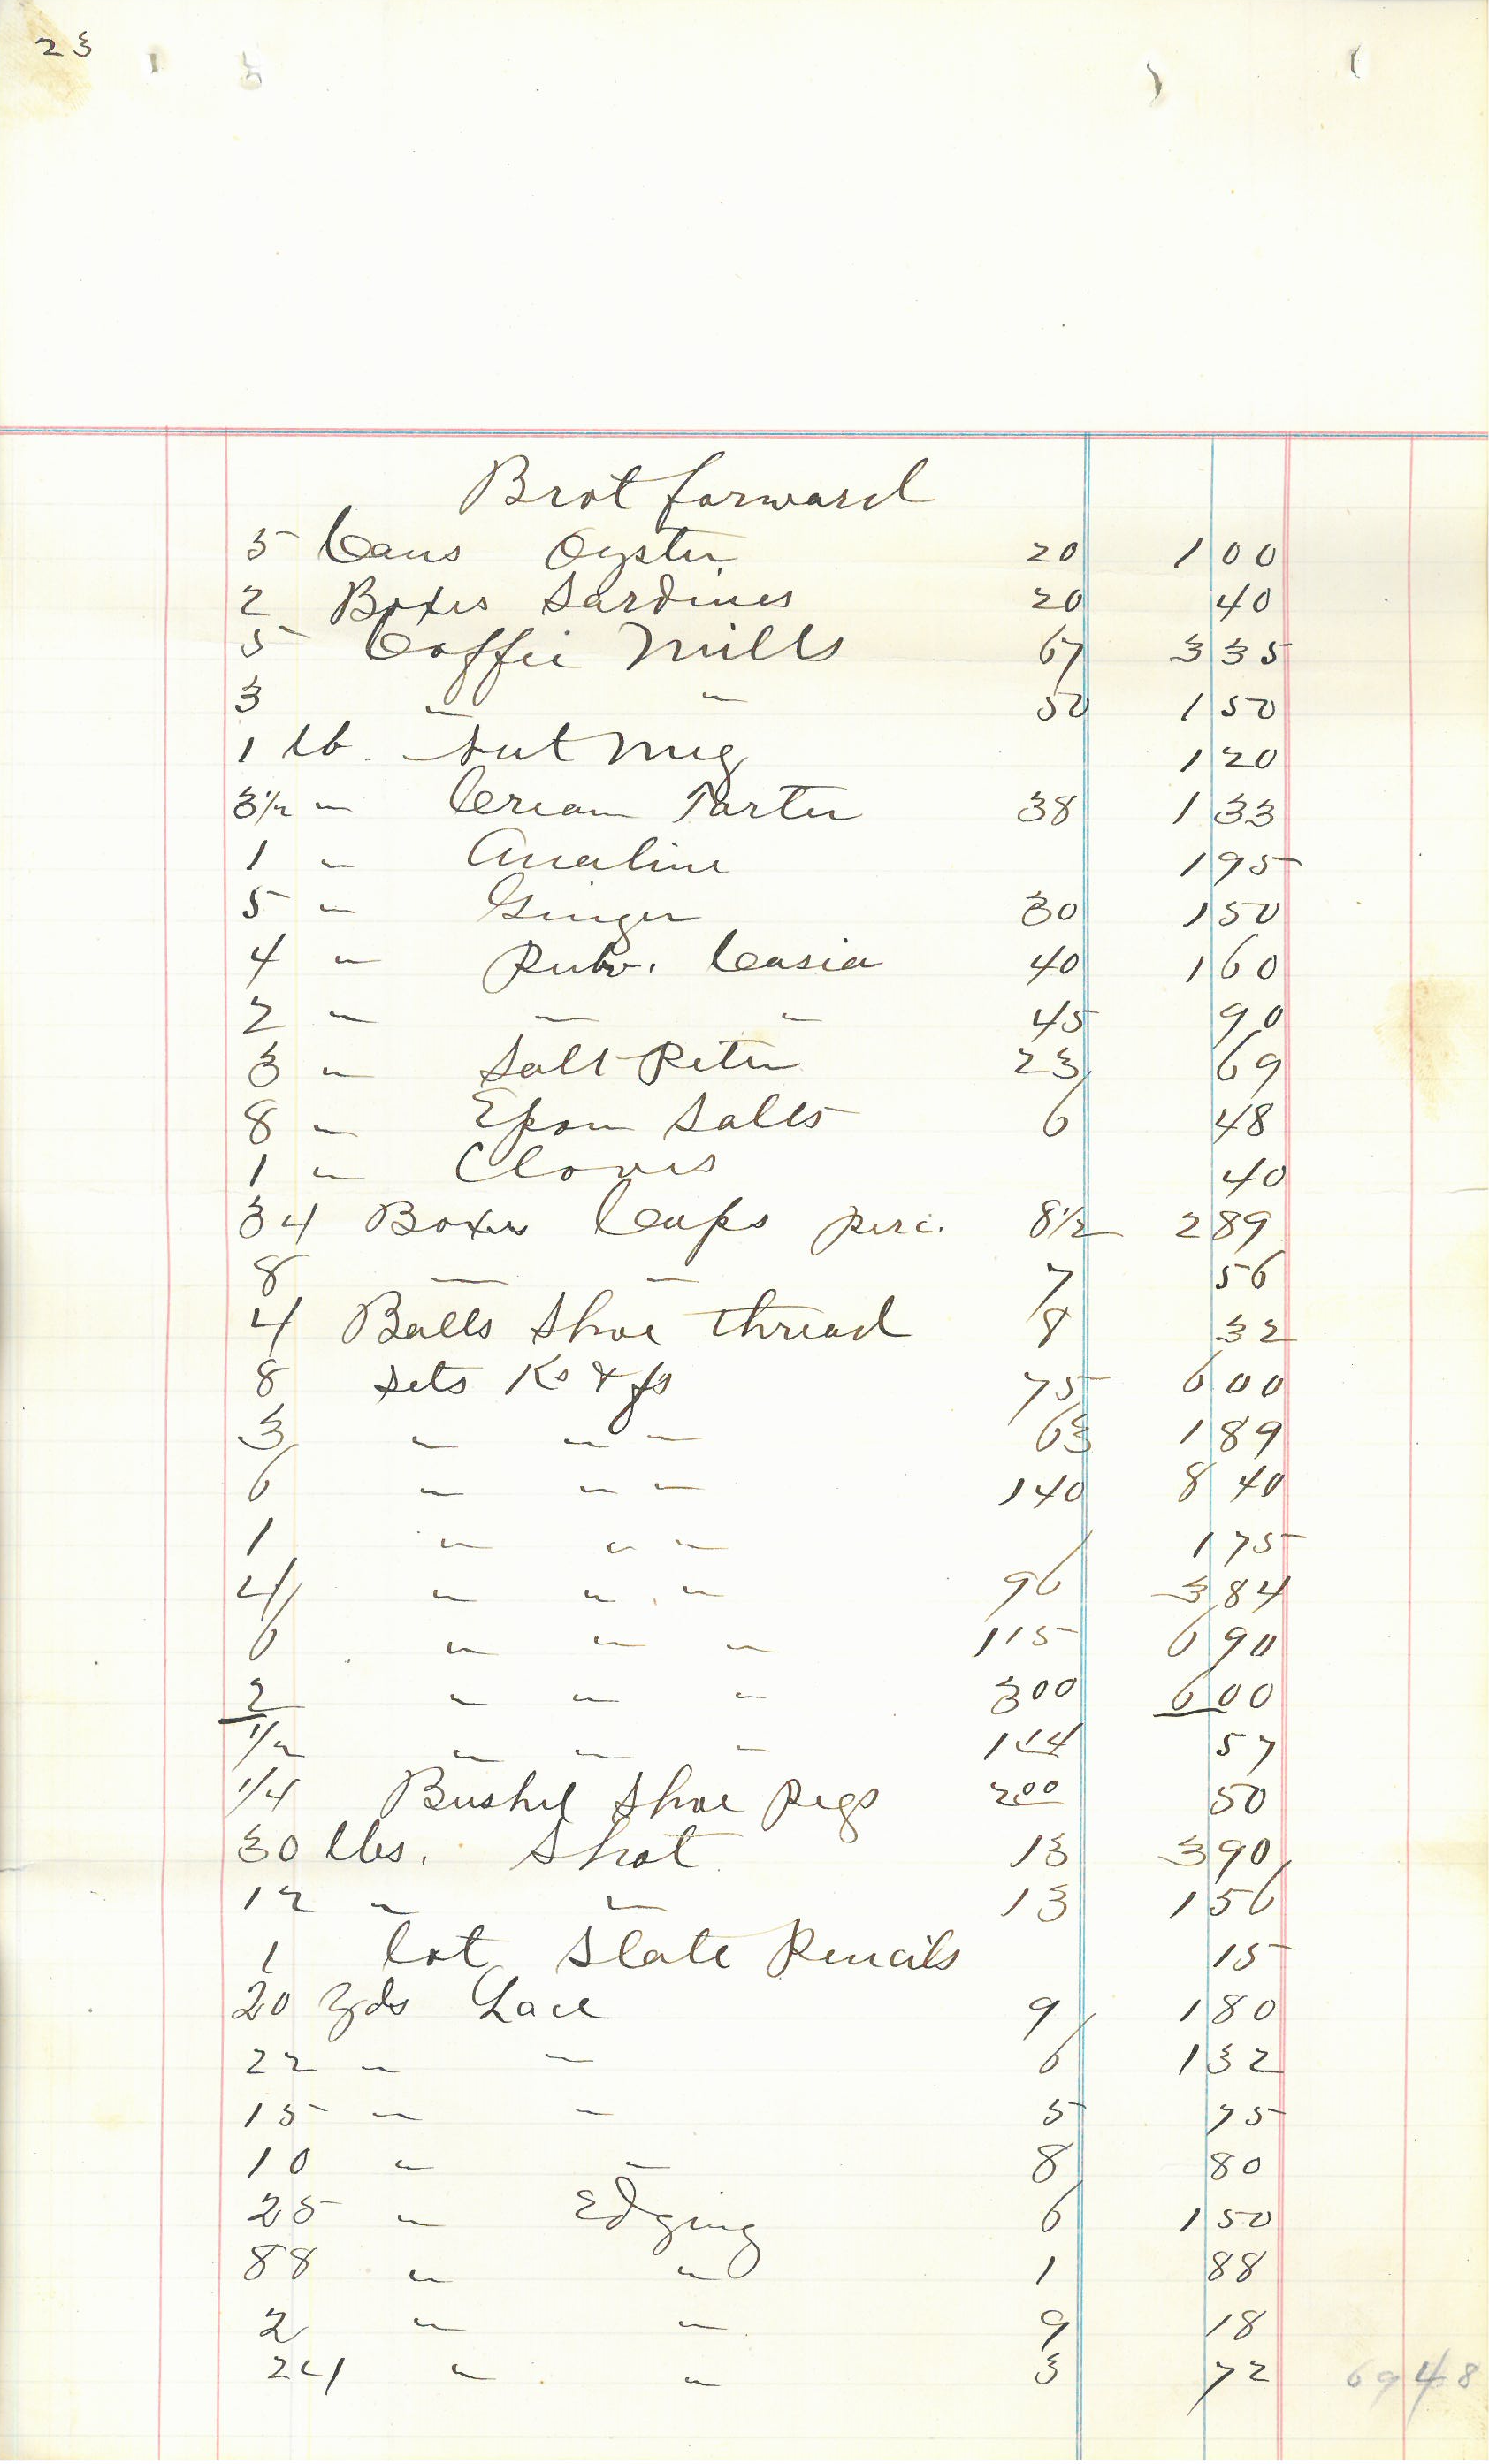 23
Brot forward
5 Cans Oyster 20 1 00
2 Boxes Sardines 20 40
5 Coffee Mills 67 3 35
3 " " 50 1 50
1 lb. Nut Meg 1 20
3 1/2 " Cream Tarter 38 1 33
1 " Analine 1 95
5 " Ginger 30 1 50
4 " Pulv. Casia 40 1 60
2 " " " 45 90
3 " Salt Peter 23 69
8 " Epsom Salts 6 48
1 " Cloves 40
34 Boxes Caps perc. 8 1/2 2 89
8 " " 7 56
4 Balls Shoe thread 8 32
8 sets Ks & fs 75 6 00
3 " " " 63 1 89
6 " " " 140 8 40
1 " " " 1 75
4 " " " 96 3 84
6 " " " 115 6 90
2 " " " 300 6 00
1/2 " " " 114 57
1/4 Bushel Shoe Pegs 200 50
30 lbs. Shot 13 3 90
12 " " 13 1 56
1 lot Slate Pencils 15
20 Yds Lace 9 1 80
22 " " 6 1 32
15 " " 5 75
10 " " 8 80
25 " Edging 6 1 50
88 " " 1 88
2 " " 9 18
24 " " 3 72 69 48